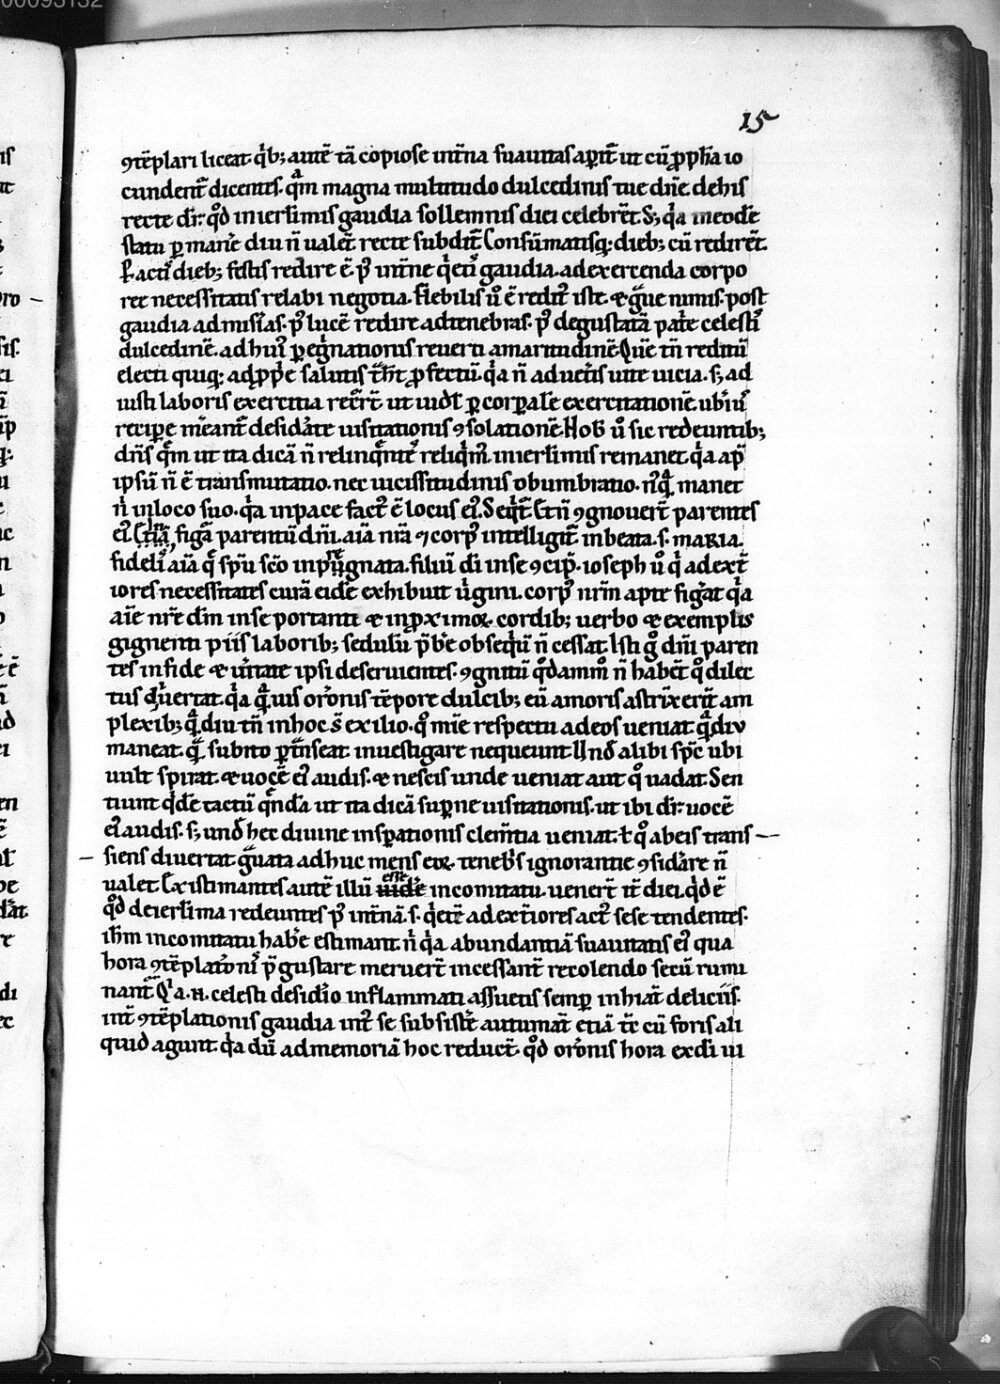 15
ꝯtẽplari liceat. qͥb; autẽ tã copiose int̃na suauitas aꝑit̃ ut cũ ꝓph̃a io
cundent̃ dicentes. qͣm magna multitudo dulcedinis tue dñe. de his
recte dr̃. qͦd in ierl̃imis gaudia sollemnis diei celebrẽt. S; qͥa in eodẽ
statu ꝑmanẽ diu ñ ualẽt recte subdit̃. Consũmatisq; dieb; cũ redirẽt.
ꝑactis dieb; festis redire ẽ pꝰ int̃ne qͥetis gaudia. ad exercenda corpo
ree necessitatis relabi negotia. Flebilis ũ ẽ reditꝰ iste. et gͣue nimis. post
gaudia ad misĩas. pꝰ lucẽ redire ad tenebras. pꝰ degustatã patͥe celestis
dulcedinẽ. ad huiꝰ ꝑegͥnationis reuerti amaritudinẽ. Quẽ tñ reditũ
electi quiq; ad ꝓpͥe salutis tͣht ꝓfectũ. qͥa ñ ad uet̃is uite uicia. s; ad
iusti laboris exercitia rect̃rt̃ ut uidꝉ ꝑ corꝑalẽ exercitationẽ. ubͥiꝰ
reciꝑe mẽant̃ desidͣate uisitationis ꝯsolationẽ. Hoꝝ ũ sic redeuntib;
dñs qͣm ut ita dicã ñ relinqͣnt̃ reliqͥt̃. in ierl̃imis remanet. qͥa apͩ
ipsũ ñ ẽ transmutatio. nec uicissitudinis obumbratio. nͣqͣ manet
ñ in loco suo. qͥa in pace factꝰ ẽ locus eiꝰ. Seqͥt̃. Et ñ ꝯgnouert̃ parentes
eiꝰ. figã parentũ dñi. aĩã nr̃ã ⁊ corpꝰ intelligit̃ in beata. s. MARIA.
fidelẽ aĩã qͥ spũ sc̃o inpregnata. filiũ di in se ꝯcip̃. ioseph ũ qͥ adext̃
iores necessitates curã eidẽ exhibuit ũgini. corpꝰ nr̃m apte figͣat. qͥa
aĩe nr̃e dm̃ in se portanti et in ꝓximoꝝ cordib; uerbo et exemplis
gignenti piis laborib; sedulũ p̃bẽ obseqͥũ ñ cessat. Isti gͦ dñi paren
tes in fide et ũitate ipsi deseruientes. ꝯgnitũ qͦdammͦ ñ habẽt qͦ dilec
tus diͥuertat. qͥa qͣuis or̃onis tẽpore dulcib; eũ amoris astrĩxerit̃ am
plexib; qͣdiu tñ in hoc sͭ exilio. qͦ mͥe respectu ad eos ueniat. qͣdiu
maneat. qͣ subito ꝑtͣnseat. inuestigare nequeunt. Uñ ⁊ alibi sp̃c ubi
uult spirat. et uocẽ eiꝰ audis. et nescis unde ueniat aut qͦ uadat. Sen
tiunt qͥdẽ tactũ qͣndã ut ita dicã suꝑne uisitationis. ut ibi dr̃. uocẽ
eiꝰ audis. s; unde hec diuine inspͥationis clem̃tia ueniat. ꝉ qͦ ab eis trans
siens diuertat. gͣuata adhuc mens eoꝝ tenebͥs ignorantie ꝯsidͣare ñ
ualet. Existimantes autẽ illũ esse in comitatu. uenert̃ it̃ diei. qͦd ẽ
qͦd de ierl̃ima redeuntes pꝰ int̃nã. s. qͥetẽ ad ext̃iores actꝰ sese tendentes.
ih̃m in comitatu habẽ estimant. ñ qͥa abundantiã suauitatis eiꝰ qua
hora ꝯtẽplatõnis p̃gustare meruert̃ incessant̃ recolendo secũ rumi
nant. Qͥa .n. celesti desidͥio inflammati assuetis semꝑ inhiant deliciis.
int̃ ꝯtẽplationis gaudia intꝰ se subsistẽ autumãt. etiã tc̃ cũ foris ali
quid agunt. qͥa dũ ad memoriã hoc reducũt. qͦd or̃onis hora ex di ui